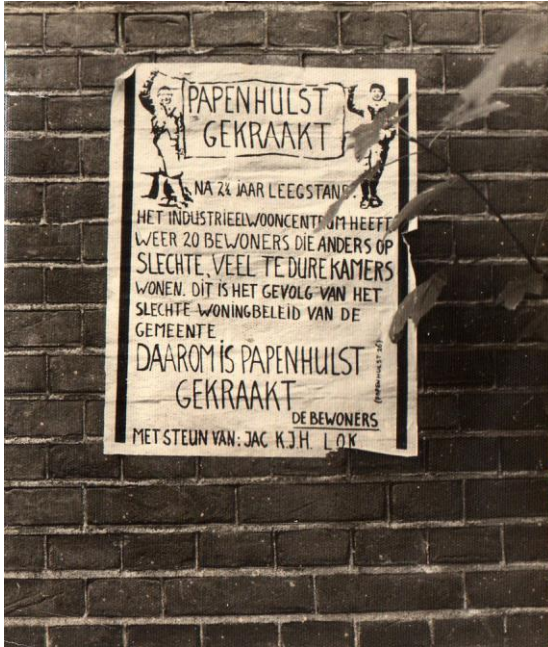 PAPENHULST
GEKRAAKT
NA 2½ JAAR LEEGSTAND.
HET INDUSTRIEELWOONCENTRUM HEEFT
WEER 20 BEWONERS DIE ANDERS OP
SLECHTE, VEEL TE DURE KAMERS
WONEN. DIT IS HET GEVOLG VAN HET
SLECHTE WONINGBELEID VAN DE
GEMEENTE
DAAROM IS PAPENHULST
GEKRAAKT
DE BEWONERS
MET STEUN VAN: JAC K.J.H. LOK
PAPENHULST